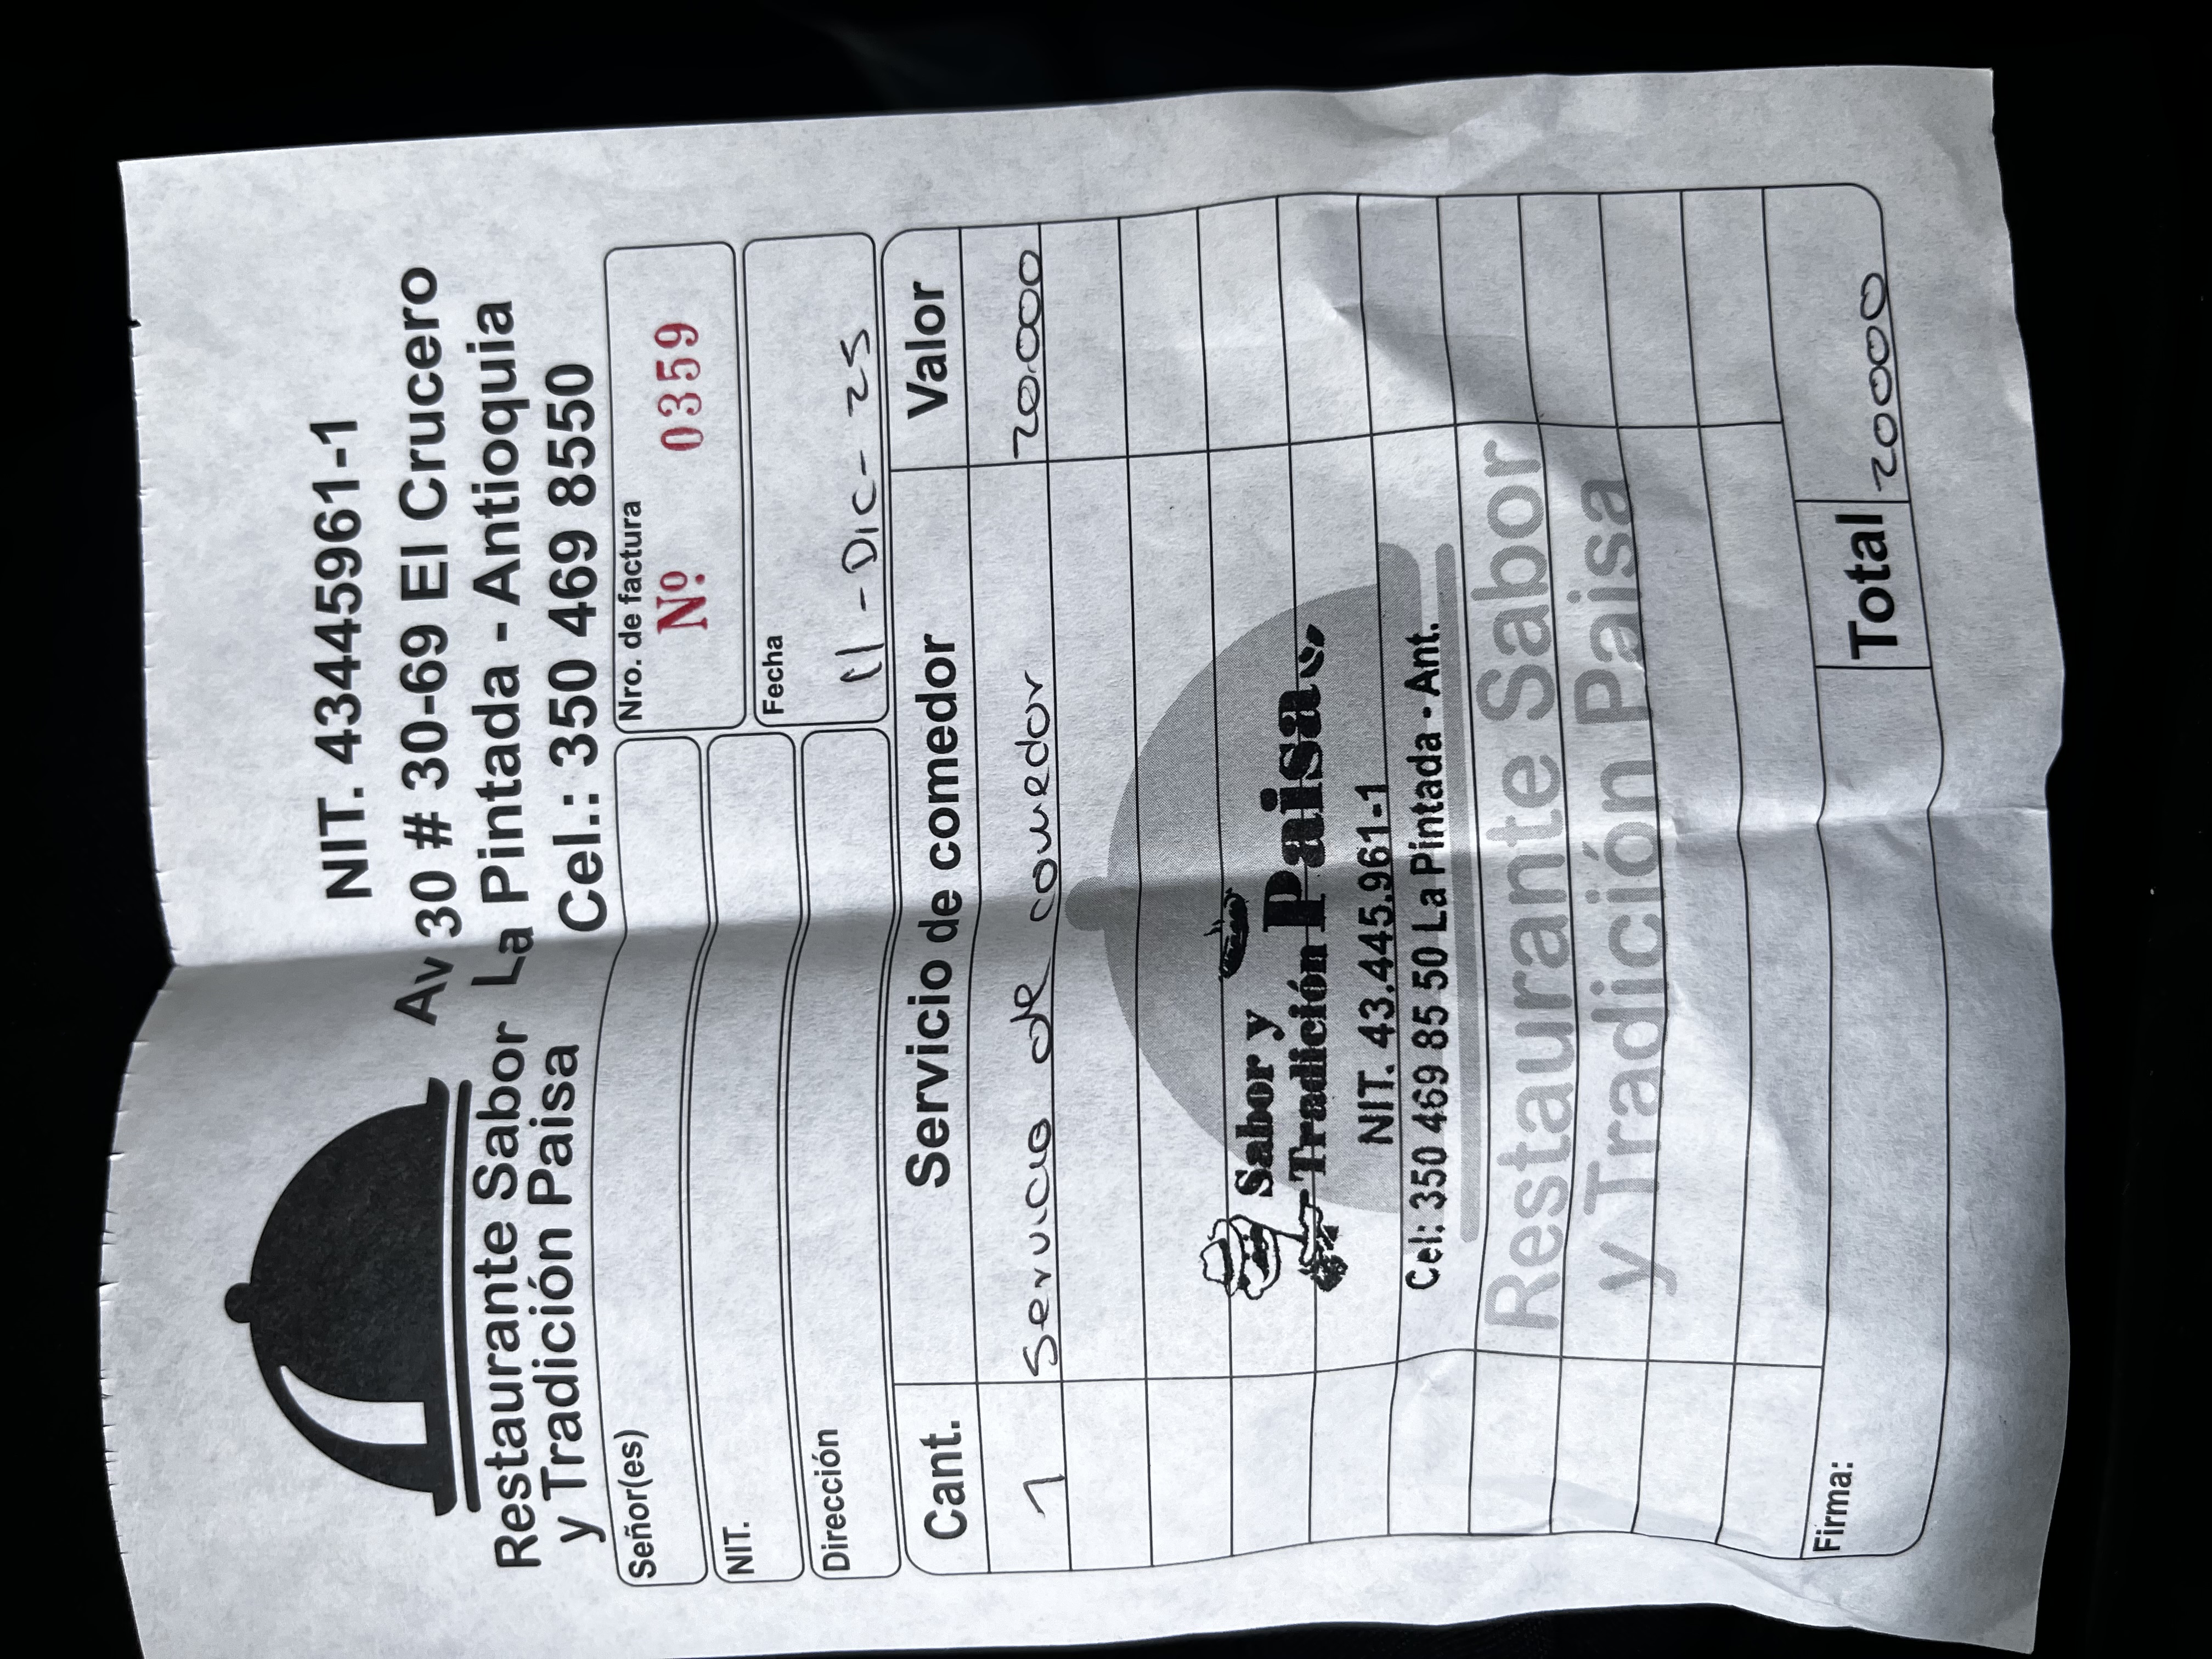 NIT. 43445961-1
Av 30 # 30-69 El Crucero
La Pintada - Antioquia
Cel.: 350 469 8550
Restaurante Sabor
y Tradición Paisa
Señor(es)
NIT.
Dirección
Nro. de factura
Nº. 0359
Fecha
11 - Dic - 25
Cant. Servicio de comedor Valor
1 Servicio de comedor 20.000
Sabor y
Tradición Paisa
NIT. 43.445.961-1
Cel: 350 469 85 50 La Pintada - Ant.
Restaurante Sabor
y Tradición Paisa
Firma:
Total 20000